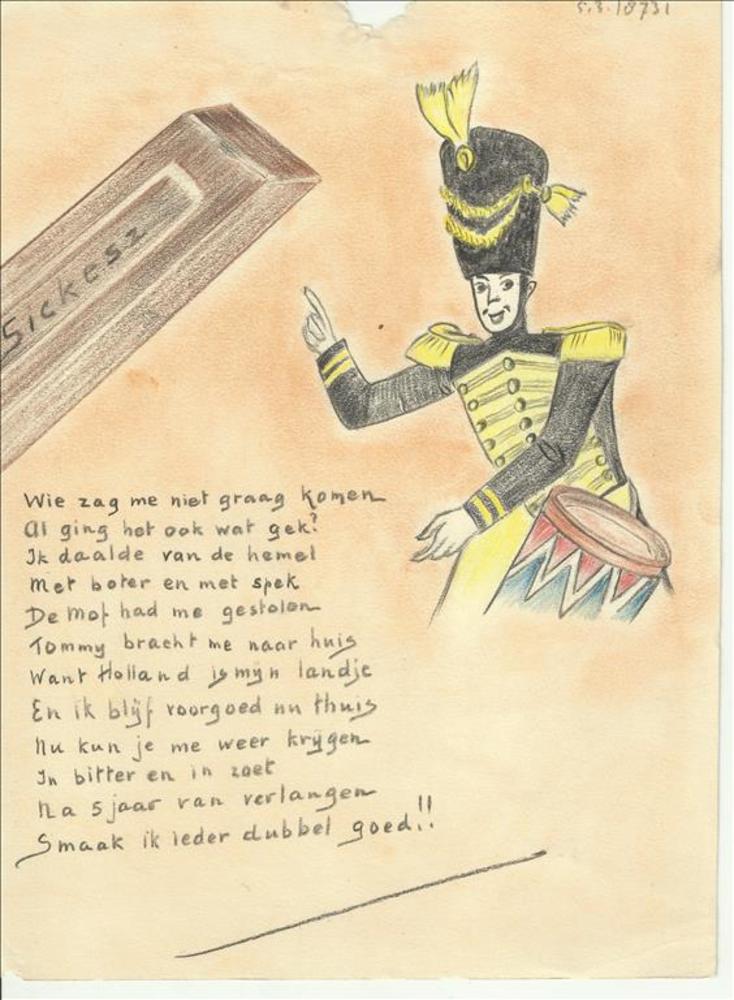 5.3.18731
Sickesz
Wie zag me niet graag komen
Al ging het ook wat gek?
Ik daalde van de hemel
Met boter en met spek
De Mof had me gestolen
Tommy bracht me naar huis
Want Holland is mijn landje
En ik blijf voorgoed nu thuis
Nu kun je me weer krijgen
In bitter en in zoet
Na 5 jaar van verlangen
Smaak ik ieder dubbel goed!!